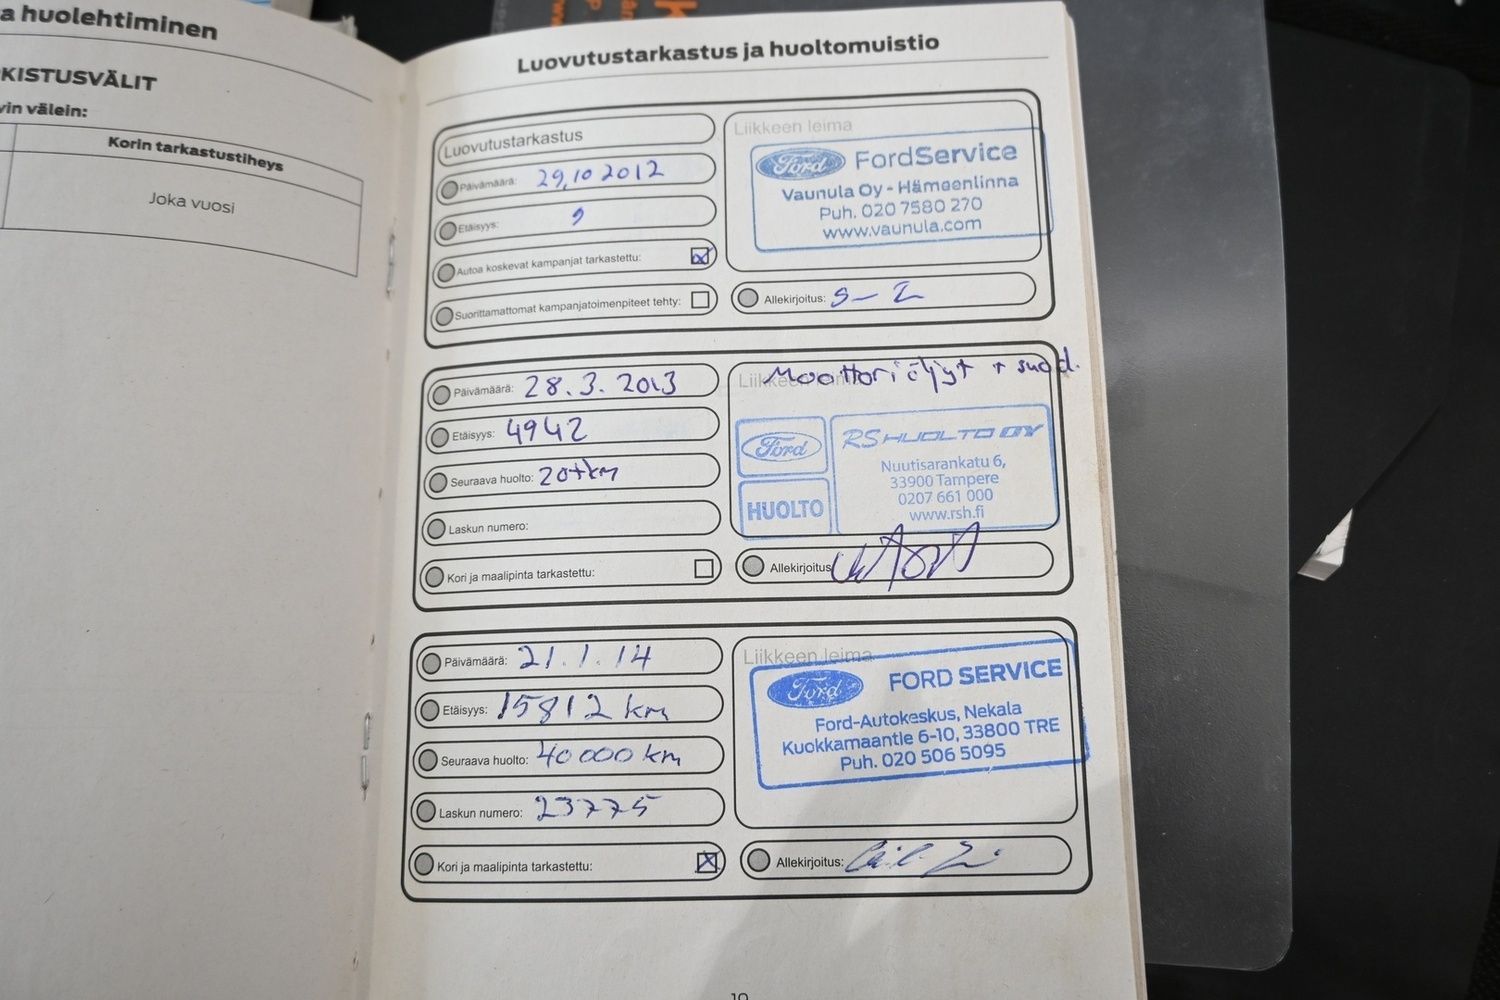 a huolehtiminen
KISTUSVÄLIT
vin välein:
Korin tarkastustiheys
Joka vuosi
Luovutustarkastus ja huoltomuistio
Luovutustarkastus
Päivämäärä: 29,10 2012
Etäisyys: 9
Autoa koskevat kampanjat tarkastettu:
Suorittamattomat kampanjatoimenpiteet tehty:
Liikkeen leima
Ford FordService
Vaunula Oy - Hämeenlinna
Puh. 020 7580 270
www.vaunula.com
Allekirjoitus:
Päivämäärä: 28.3.2013
Etäisyys: 4942
Seuraava huolto: 20tkm
Laskun numero:
Kori ja maalipinta tarkastettu:
Moottoriöljyt + suod.
Liikkeen leima
Ford
HUOLTO
RS HUOLTO OY
Nuutisarankatu 6,
33900 Tampere
0207 661 000
www.rsh.fi
Allekirjoitus
Päivämäärä: 21.1.14
Etäisyys: 15812 km
Seuraava huolto: 40 000 km
Laskun numero: 23775
Kori ja maalipinta tarkastettu:
Liikkeen leima
Ford FORD SERVICE
Ford-Autokeskus, Nekala
Kuokkamaantie 6-10, 33800 TRE
Puh. 020 506 5095
Allekirjoitus: